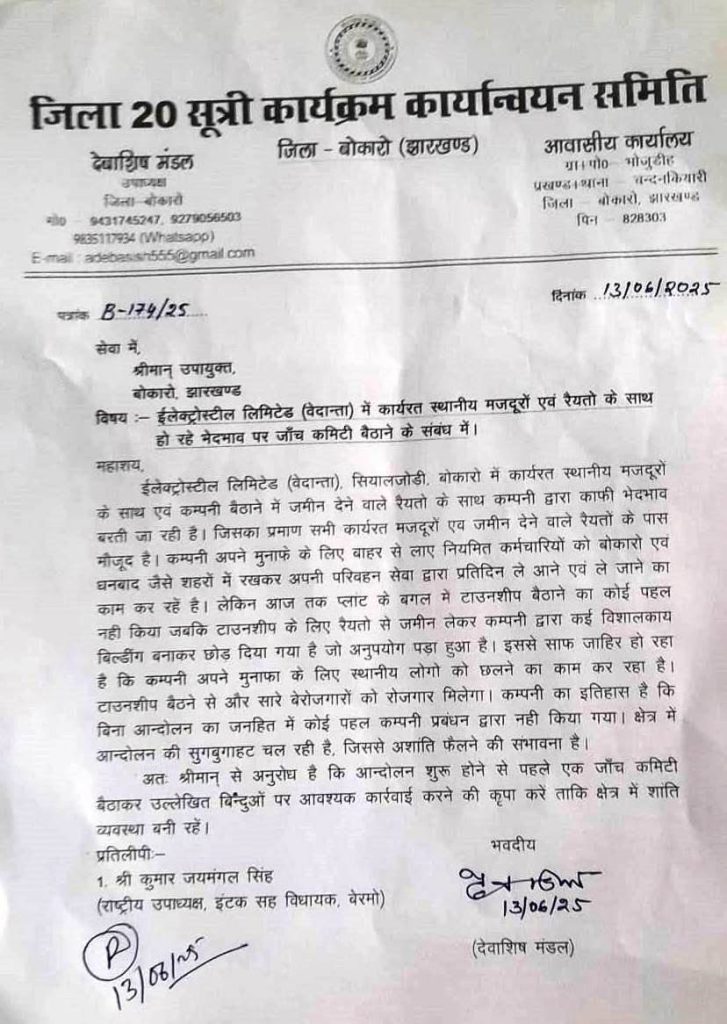 जिला 20 सूत्री कार्यक्रम कार्यान्वयन समिति
जिला - बोकारो (झारखण्ड)
देवाशिष मंडल
उपाध्यक्ष
जिला-बोकारो
मो0 - 9431745247, 9279056503
9835117934 (Whatsapp)
E-mail : adebasish555@gmail.com
आवासीय कार्यालय
ग्रा+पो0 - भोजुडीह
प्रखण्ड+थाना - चन्दनकियारी
जिला - बोकारो, झारखण्ड
पिन - 828303
पत्रांक B-174/25
दिनांक 13/06/2025
सेवा में,
श्रीमान् उपायुक्त,
बोकारो, झारखण्ड
विषय :– ईलेक्ट्रोस्टील लिमिटेड (वेदान्ता) में कार्यरत स्थानीय मजदूरों एवं रैयतो के साथ
हो रहे भेदभाव पर जाँच कमिटी बैठाने के संबंध में।
महाशय,
ईलेक्ट्रोस्टील लिमिटेड (वेदान्ता), सियालजोडी, बोकारो में कार्यरत स्थानीय मजदूरों
के साथ एवं कम्पनी बैठाने में जमीन देने वाले रैयतो के साथ कम्पनी द्वारा काफी भेदभाव
बरती जा रही है। जिसका प्रमाण सभी कार्यरत मजदूरों एव जमीन देने वाले रैयतों के पास
मौजूद है। कम्पनी अपने मुनाफे के लिए बाहर से लाए नियमित कर्मचारियों को बोकारो एवं
धनबाद जैसे शहरों में रखकर अपनी परिवहन सेवा द्वारा प्रतिदिन ले आने एवं ले जाने का
काम कर रहें है। लेकिन आज तक प्लांट के बगल में टाउनशीप बैठाने का कोई पहल
नही किया जबकि टाउनशीप के लिए रैयतो से जमीन लेकर कम्पनी द्वारा कई विशालकाय
बिल्डींग बनाकर छोड़ दिया गया है जो अनुपयोग पड़ा हुआ है। इससे साफ जाहिर हो रहा
है कि कम्पनी अपने मुनाफा के लिए स्थानीय लोगो को छलने का काम कर रहा है।
टाउनशीप बैठने से और सारे बेरोजगारों को रोजगार मिलेगा। कम्पनी का इतिहास है कि
बिना आन्दोलन का जनहित में कोई पहल कम्पनी प्रबंधन द्वारा नही किया गया। क्षेत्र में
आन्दोलन की सुगबुगाहट चल रही है, जिससे अशांति फैलने की संभावना है।
अतः श्रीमान् से अनुरोध है कि आन्दोलन शुरू होने से पहले एक जाँच कमिटी
बैठाकर उल्लेखित बिन्दुओं पर आवश्यक कार्रवाई करने की कृपा करें ताकि क्षेत्र में शांति
व्यवस्था बनी रहें।
प्रतिलीपीः–
1. श्री कुमार जयमंगल सिंह
(राष्ट्रीय उपाध्यक्ष, इंटक सह विधायक, बेरमो)
भवदीय
13/06/25
(देवाशिष मंडल)
R
13/06/25